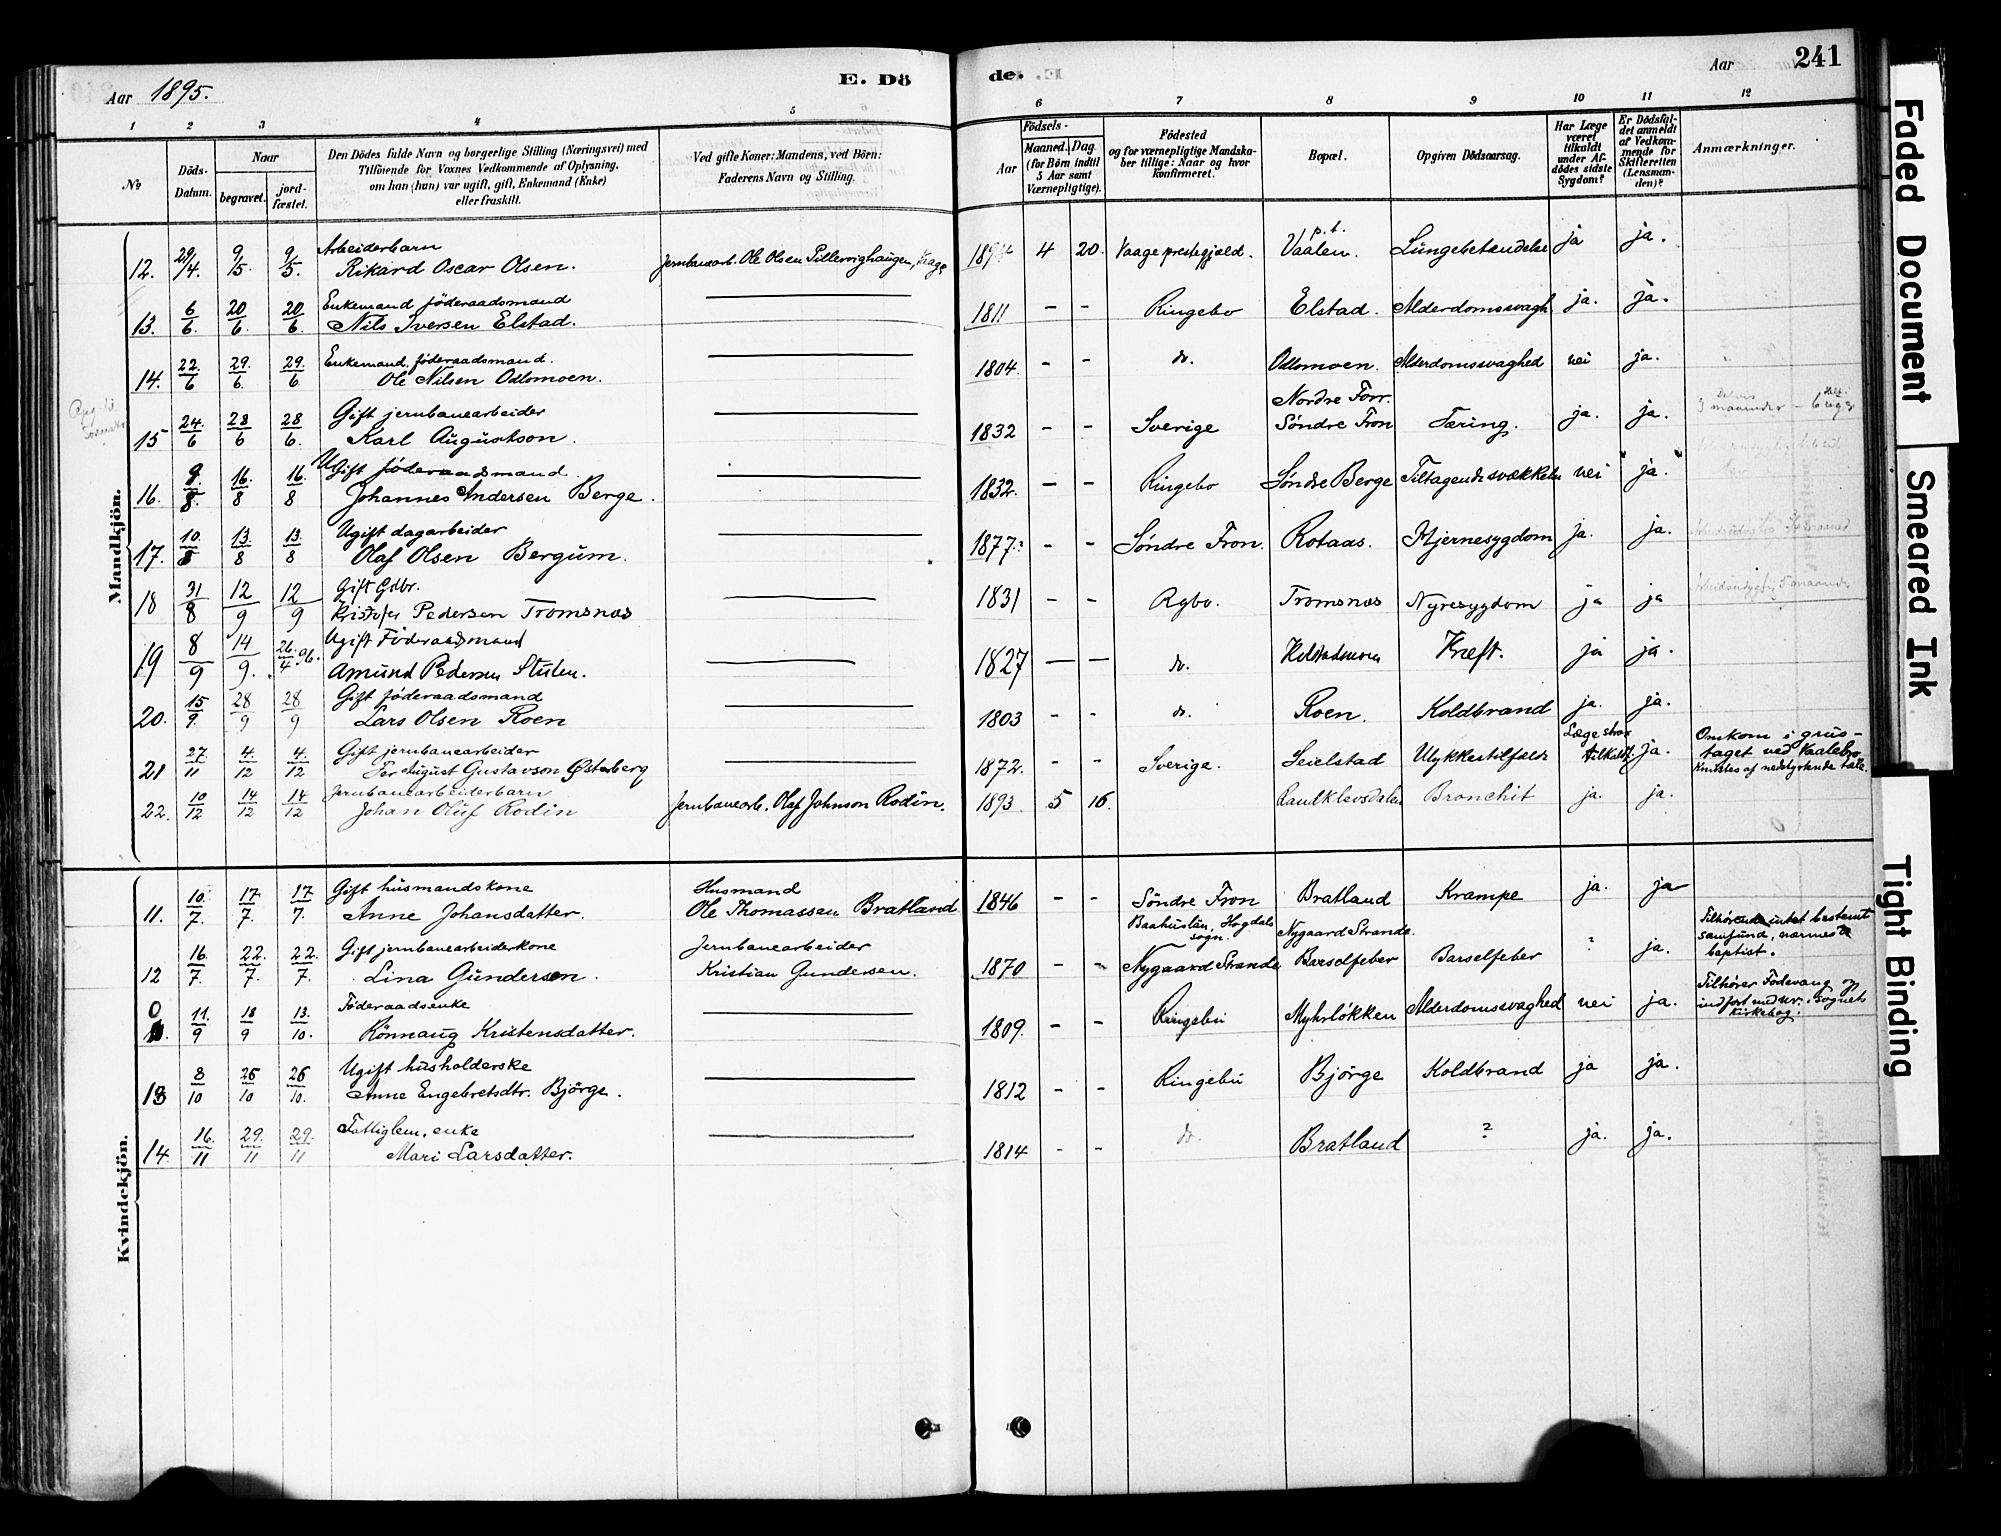 Aar 1895. E. Dö
de. Aar 241
1 2 3 4 5
6 7 8 9 10 11 12
No
Döds-Datum.
Naar
begravet.
jord-fæstet.
Den Dödes fulde Navn og borgerlige Stilling (Næringsvei) med
Tilföiende for Voxnes Vedkommende af Oplysning,
om han (hun) var ugift, gift, Enkemand (Enke)
eller fraskilt.
Ved gifte Koner: Mandens, ved Börn:
Faderens Navn og Stilling.
Födsels-
Aar
Maaned. Dag.
(for Börn indtil
5 Aar samt
Værnepligtige).
Födested
og for værnepligtige Mandska-
ber tillige: Naar og hvor
konfirmeret.
Bopæl.
Opgiven Dödsaarsag.
Har Læge
været
tilkaldt
under Af-
dödes sidste
Sygdom?
Er Dödsfal-
det anmeldt
af Vedkom-
mende for
Skifteretten
(Lensman-
den)?
Anmærkninger.
Mandkjön.
Arbeiderbarn p.t.
12. 29/4. 9/5. 9/5. Rikard Oscar Olsen. Jernbanearb. Ole Olsen 4 20. Vaage prestegjeld. Vaalen. Lungebetændelse ja ja.
Enkemand föderaadsmand
13. 6/6. 20/6. 20/6. Nils Iversen Elstad. 1811 - - Ringebo Elstad. Alderdomssvagh. ja. ja.
Enkemand, föderaadsmand.
14. 22/6 29/6. 29/6 Ole Nilsen Odlomoen. 1804. - - do. Odlomoen. Alderdomssvaghed nei ja.
Gift jernbanearbeider Nordre Forr.
15 24/6 28/6 28/6. Karl Augustson. 1832 - - Sverige Söndre Fron Tæring. ja. ja.
Ugift föderaadsmand
16. 9/8. 16/8 16/8 Johannes Andersen Berge. 1832. - - Ringebo Söndre Berge Tiltagende svækkelse nei ja.
Ugift dagarbeider
17. 10/8 13/8 13/8 Olaf Olsen Bergum. 1877.? - - Söndre Fron. Rotaas. Hjernesygdom ja. ja.
Gift Gdbr.
18 31/8 12/9 12/9 Kristofer Pedersen Tromsnæs 1831 - - Rgbo. Tromsnæs Nyresygdom ja ja
Ugift Föderaadsmand
19 8/9 14/9. 26/4 96. Amund Pedersen Stulen. 1827 - - do. Kræft. ja ja.
Gift föderaadsmand
20. 15/9. 28/9 28/9 Lars Olsen Roen 1803 - - do. Roen. Koldbrand ja. ja.
Gift jernbanearbeider Læge strax Omkom i grus-
21 27/11 4/12 4/12 Per August Gustavson Österberg 1872. - - Sverige. Seielstad Ulykkestilfælde tilkaldt. ja. taget ved Vaalebro.
Knustes af nedstyrtende tæle.
Jernbanearbeiderbarn
22. 10/12 14/12 14/12 Johan Oluf Rodin Jernbanearb. Olaf Johnson Rodin. 1893 5 16. Randklevsdalen Bronchit ja. ja.
Kvindekjön.
Gift husmandskone Husmand
11. 10/7. 17/7. 17/7. Anne Johansdatter. Ole Thomassen Bratland 1846 - - Söndre Fron Bratland Krampe ja. ja
Gift jernbanearbeiderkone Jernbanearbeider Baahuslän, Hogdals sogn. Nygaard Strande. Tilhörende intet bestemt
samfund, nærmest
12 16/7. 22/7. 22/7. Lina Gundersen. Kristian Gundersen. 1870 - - Nygaard Strande Barselfeber Barselfeber ? ja. baptist.
Föderaadsenke Tilhörer Födevang og
0 11/9 18/9 13/10. Rönnaug Kristensdatter. 1809. - - Ringebu Myhrlökken Alderdomssvaghed nei ja. indfört med nr. i sognets
kirkebog.
Ugift husholderske
13 8/10 26/10 26/10. Anne Engebretsdtr. Björge. 1812 - - Ringebu Björge Koldbrand ja ja.
Fattiglem, enke
14. 16/11 29/11 29/11 Mari Larsdatter. 1814 - - do. Bratland ? ja. ja.
Faded Document
Smeared Ink
Tight Binding